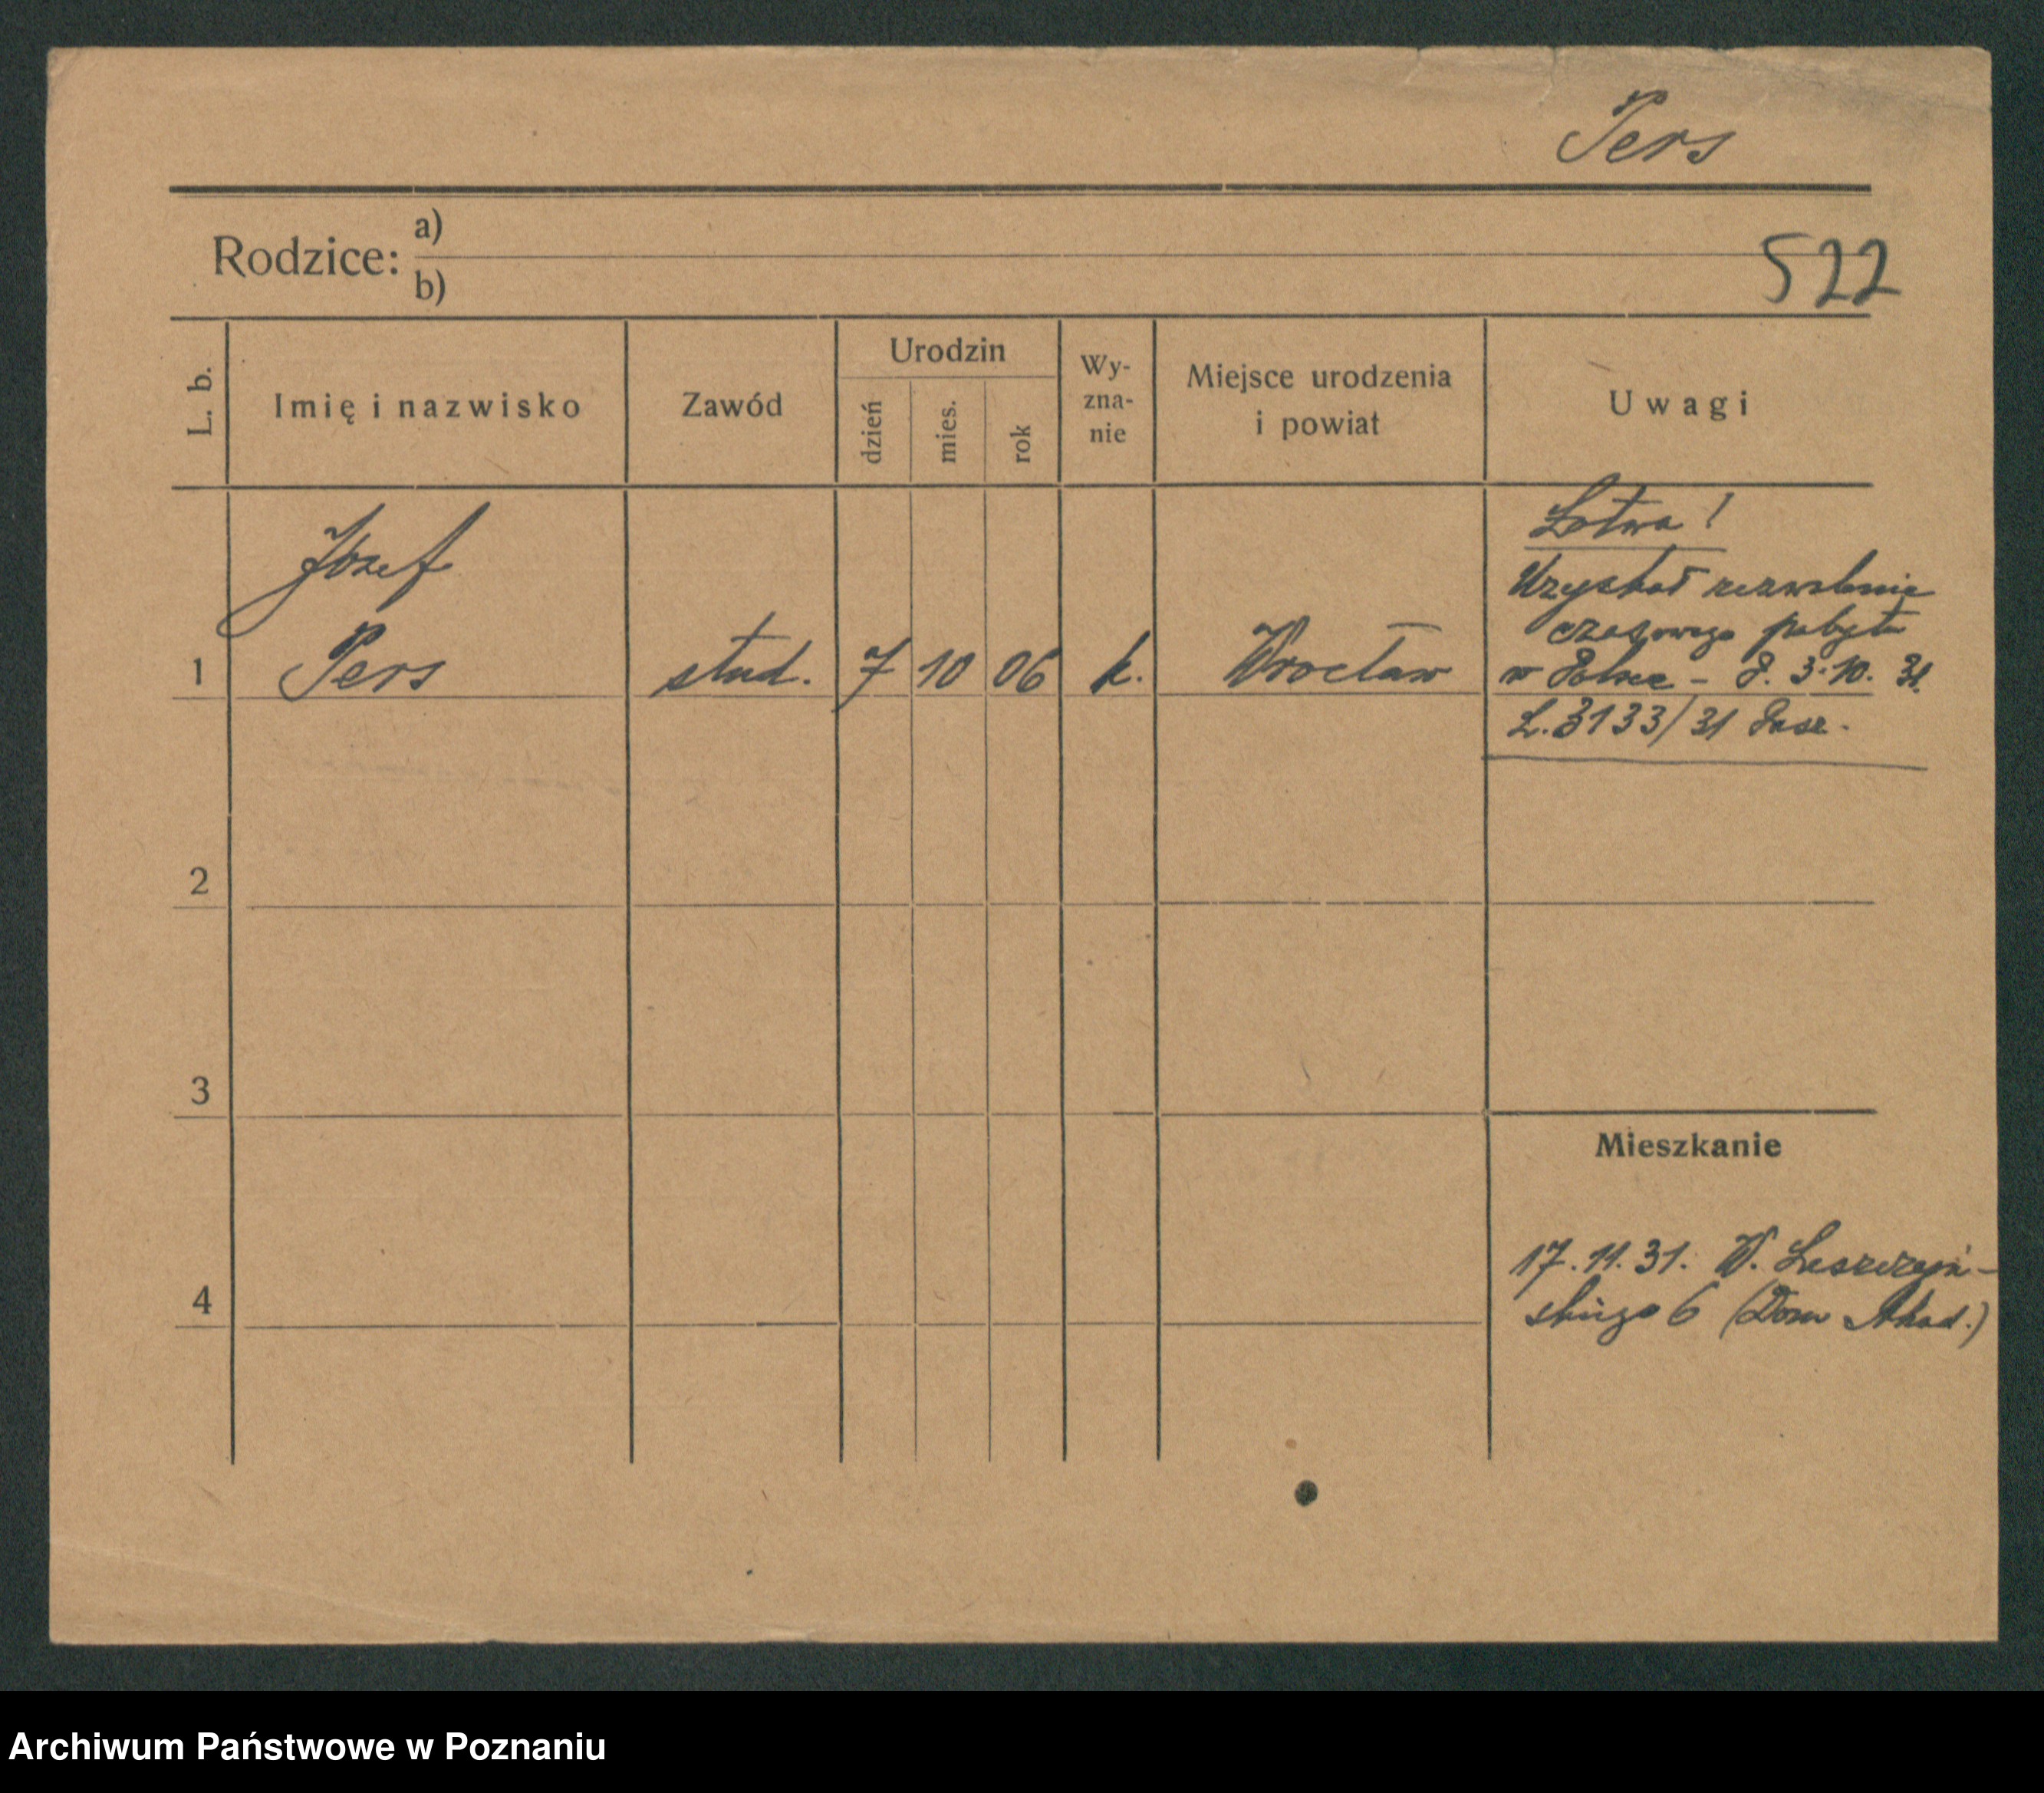 Pers
Rodzice: a)
b)
522
L. b.
Imię i nazwisko
Zawód
Urodzin
dzień
mies.
rok
Wy-
zna-
nie
Miejsce urodzenia
i powiat
Uwagi
Józef
1 Pers stud. 7 10 06 k. Wrocław
Łotwa !
Uzyskał zezwolenie
czasowego pobytu
w Polsce - P. 3.10.31.
L. 3133/31 Pasz.
2
3
Mieszkanie
17.11.31. W. Leszczyń-
skiego 6 (Dom Akad.)
4
Archiwum Państwowe w Poznaniu